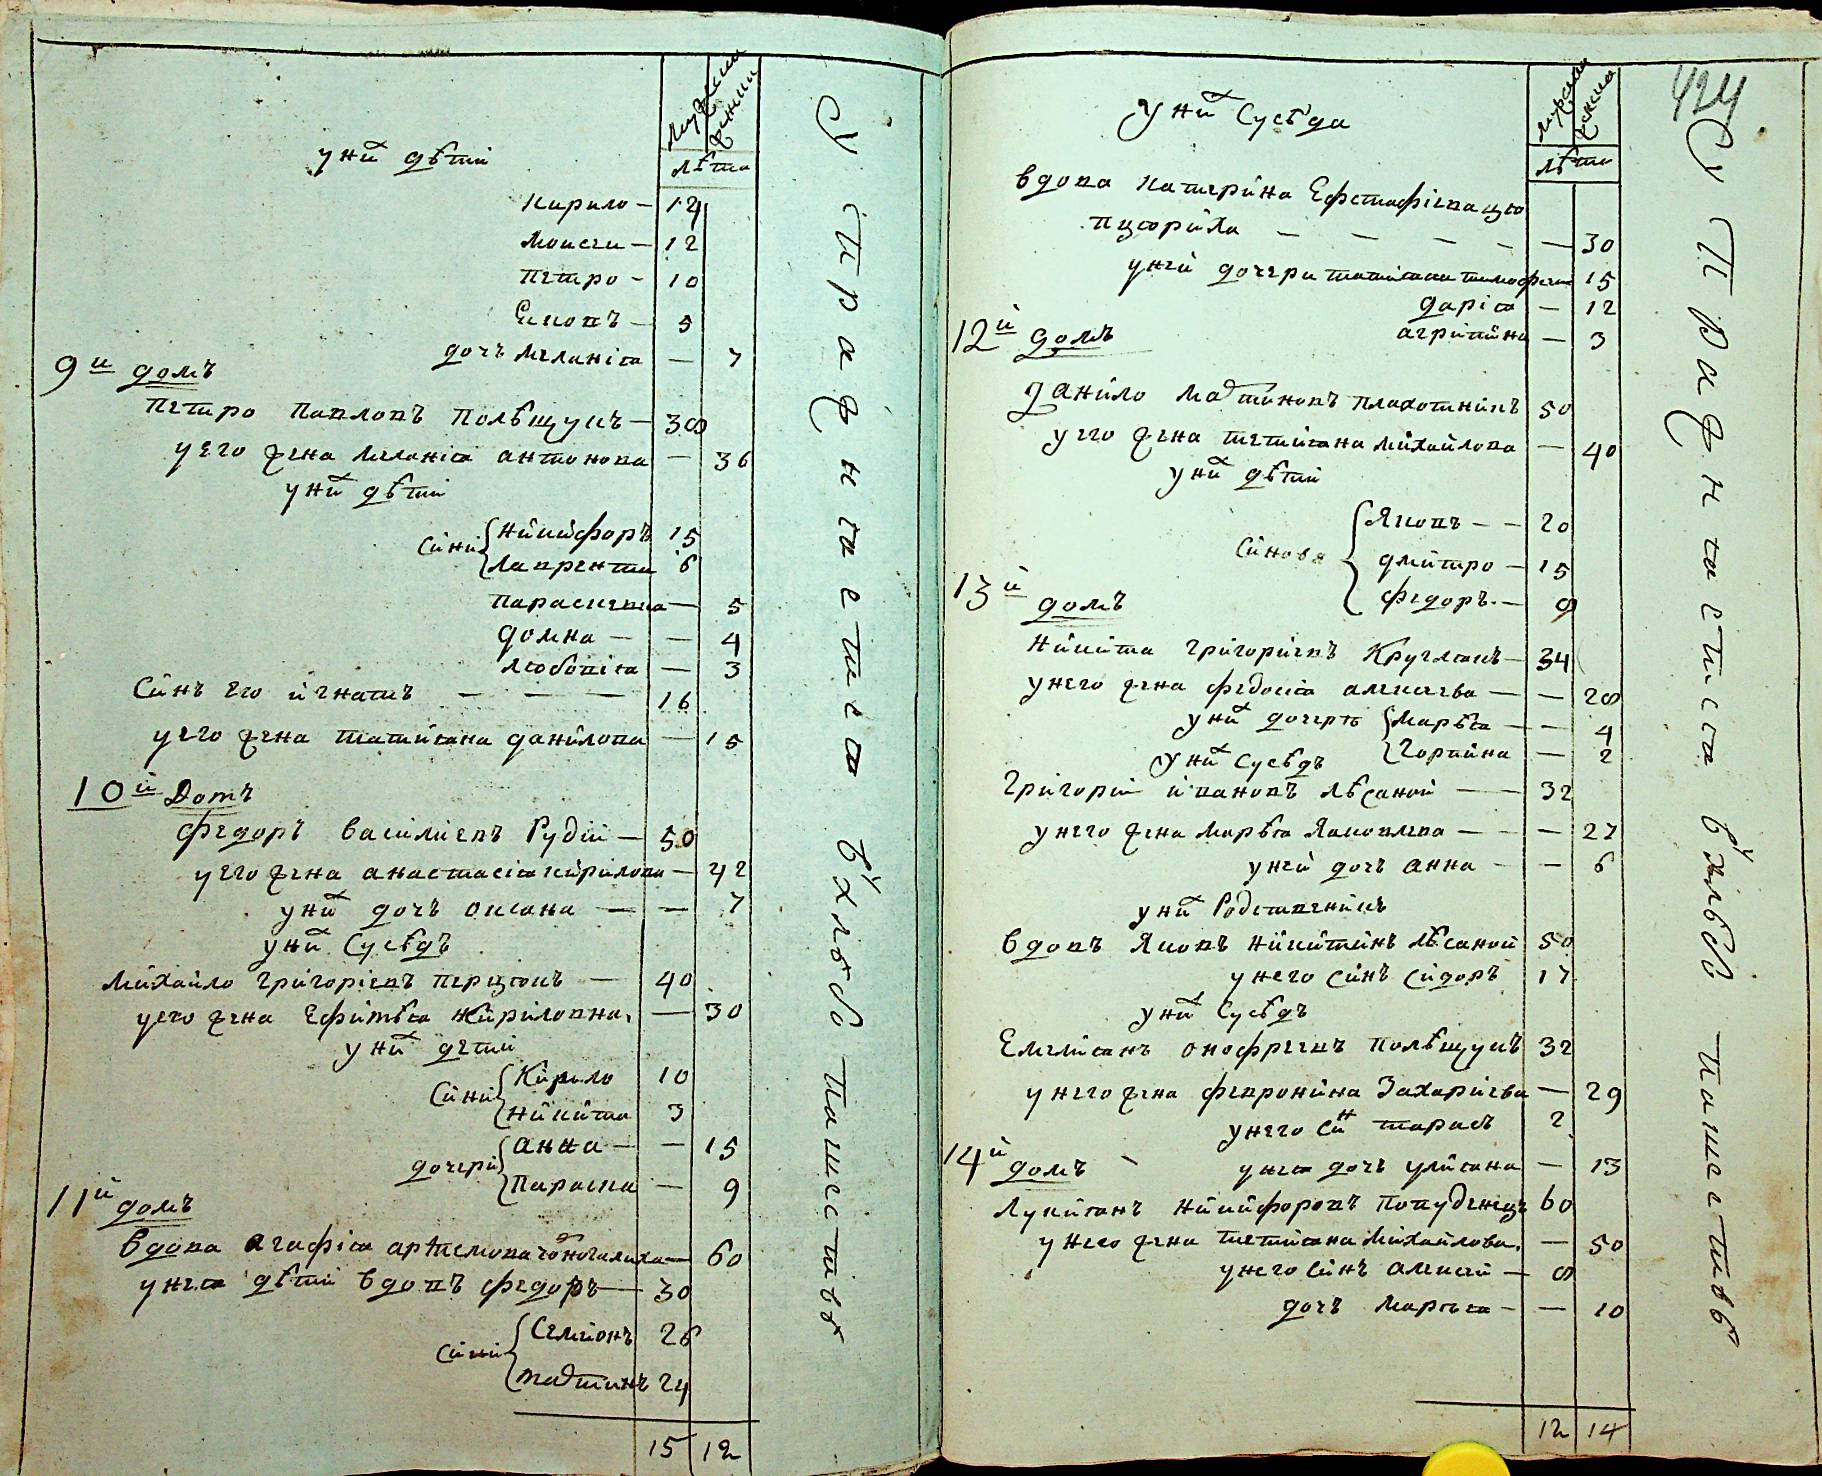 мужски женски
лѣта
у ни̃ дѣтй
Кирило — 14
Моисеи — 12
Петро — 10
Єковъ — 5
дочъ Меланія — 7
9й домъ
Петро Павловъ Полѣщукъ — 38
у его жена Меланія антонова — 36
у ни̃ дѣтй
Сини Никифоръ 15
Лаврентий 6
Параскевия — 5
домна — 4
Любовія — 3
Синъ его игнатъ — 16
у его жена татияна данилова — 15
10й Домъ
Федоръ Василиевъ Рудій — 50
у его жена анастасія кирилова — 42
у ни̃ дочъ оксана — 7
у ни̃ Сусѣдъ
Михайло Григоріевъ Перцюкъ — 40
у его жена Ефимѣя Кириловна — 30
у ни̃ детй
Сини Кирило 10
Никита 3
дочери анна — 15
Параска — 9
11й домъ
Вдова агафія артемова — 60
у нея дѣтй вдовъ Федоръ — 30
Сини Семионъ 26
мартинъ 24
15 12
Супражняется въ хлѣбопашествѣ
424
мужски женски
лѣта
у ни̃ Сусѣда
Вдова Катерина Ефстафіева
— 30
у ней дочери татияна — 15
дарія — 12
агрипина — 3
12й домъ
Данило Мартиновъ Плахотникъ 50
у его жена татияна михайлова — 40
у ни̃ дѣтй
Синовя Яковъ — 20
дмитро — 15
Федоръ — 8
13й домъ
Никита Григориевъ Круглякъ — 34
у него жена Федосія алексеева — 28
у ни̃ дочерѣ Марѣя — 4
Горпина — 2
у ни̃ Сусѣдъ
Григорій ивановъ Лѣсаной — 32
у него жена Марѣя Яковлева — 27
у ней дочъ анна — 6
у ни̃ Родственикъ
Вдовъ Яковъ Никитинъ Лѣсаной 50
у него Синъ Сидоръ 17
у ни̃ Сусѣдъ
Емелиянъ онофреевъ Полѣщукъ 32
у него жена Февронийна Захариева — 29
у него Син тарасъ 2
у нея дочъ улияна — 13
14й домъ
Лукиянъ Никифоровъ 60
у него жена татияна Михайлова — 50
у него Синъ алексий — 8
дочъ Марѣя — 10
12 14
Супражняется въ хлѣбопашествѣ